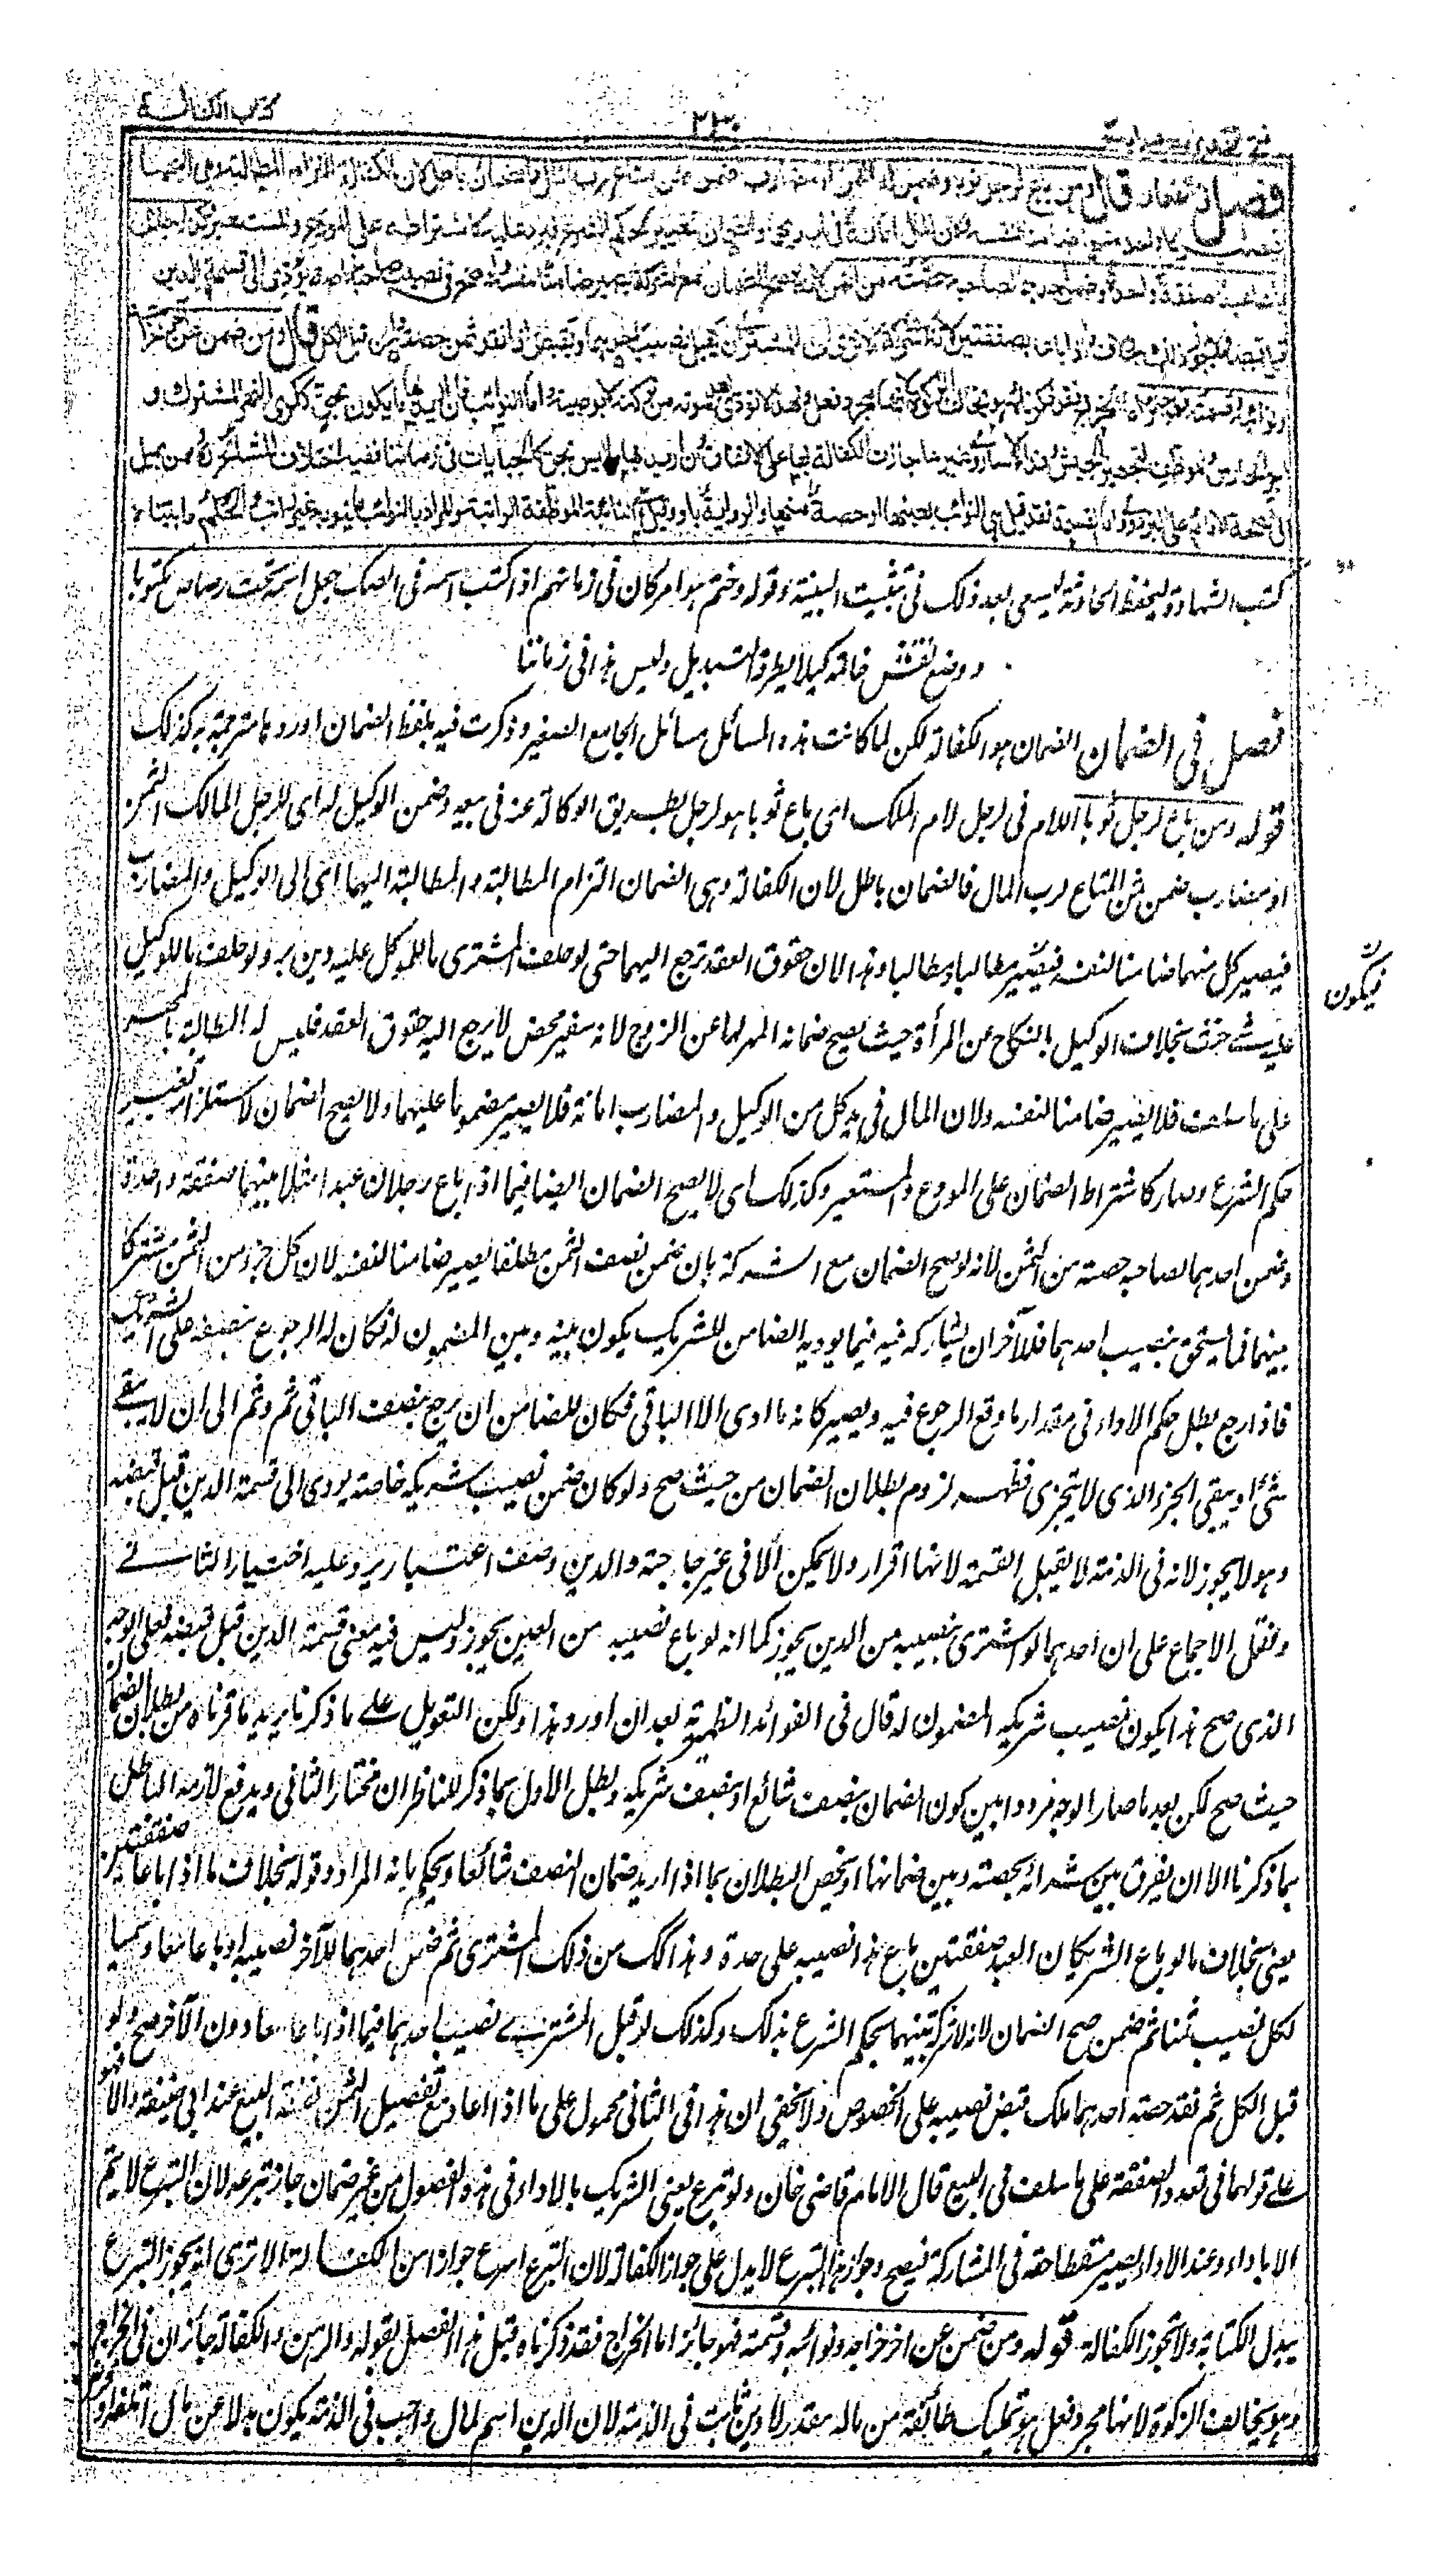 كتاب الكفالة
٢٣٠
فصل في الضمان قال ومن باع لرجل ثوبا وضمن له الثمن او مضارب ضمن ثمن متاع رب المال فالضمان باطل لان الكفالة التزام المطالبة وهي اليهما
فيصير كل واحد منهما ضامنا لنفسه ولان المال امانة في ايديهما والضمان تغيير لحكم الشرع فيرد عليه كاشتراطه على المودع والمستعير وكذا رجلان
باعا عبدا صفقة واحدة وضمن احدهما لصاحبه حصته من الثمن لانه لو صح الضمان مع الشركة يصير ضامنا لنفسه ولو صح في نصيب صاحبه خاصة يؤدي الى قسمة الدين
قبل قبضه ولا يجوز ذلك بخلاف ما اذا باعا بصفقتين لانه لا شركة الا ترى ان للمشتري ان يقبل نصيب احدهما ويقبض اذا نقد ثمن حصته وان قبل الكل قال ومن ضمن عن اخر خراجه
ونوائبه وقسمته فهو جائز اما الخراج فقد ذكرناه وهو يخالف الزكوة لانها مجرد فعل ولهذا لا تؤدى بعد موته من تركته الا بوصية واما النوائب فان اريد بها ما يكون بحق ككري النهر المشترك و
اجر الحارس والموظف لتجهيز الجيش وفداء الاسارى وغيرها جازت الكفالة بها على الاتفاق وان اريد بها ما ليس بحق كالجبايات في زماننا ففيه اختلاف المشائخ وممن يميل
الى الصحة الامام على البزدوي واما القسمة فقد قيل هي النوائب بعينها او حصة منها والرواية باو وقيل هي النائبة الموظفة الراتبة والمراد بالنوائب ما ينوبه غير راتب والحكم ما بيناه
كتب الشهادة ليحفظ الحادثة ليسعى بعد ذلك في تثبيت البينة وقوله وختم هو امر كان في زمانهم اذا كتب اسمه في الصك جعل اسمه تحت رصاص مكتوبا
ووضع نقش خاتمه كيلا يطرقه التبديل وليس هذا في زماننا
فصل في الضمان الضمان هو الكفالة لكن لما كانت هذه المسائل مسائل الجامع الصغير وذكرت فيه بلفظ الضمان اوردها مترجمة به كذلك
قوله ومن باع لرجل ثوبا اللام في لرجل لام الملك اى باع ثوبا هو لرجل بطريق الوكالة عنه في بيعه وضمن الوكيل له اى للرجل المالك الثمن
او مضارب ضمن ثمن المتاع لرب المال فالضمان باطل لان الكفالة وهى الضمان التزام المطالبة والمطالبة اليهما اى الى الوكيل والمضارب
فيصير كل منهما ضامنا لنفسه فيصير مطالبا ومطالبا وهذا لان حقوق العقد ترجع اليهما حتى لو حلف المشترى ما للموكل عليه دين بر ولو حلف ما للوكيل
عليه شئ حنث بخلاف الوكيل بالنكاح من المرأة حيث يصح ضمانه المهر لها عن الزوج لانه سفير محض لا يرجع اليه حقوق العقد فليس له المطالبة بالمهر
على ما سلف فلا يصير ضامنا لنفسه ولان المال في يد كل من الوكيل والمضارب امانة فلا يصير مضمونا عليهما ولا يصح الضمان لاستلزامه تغيير
حكم الشرع وصار كاشتراط الضمان على المودع والمستعير وكذلك اى لا يصح الضمان ايضا فيما اذا باع رجلان عبدا مثلا بينهما صفقة واحدة
وضمن احدهما لصاحبه حصته من الثمن لانه لو صح الضمان مع الشركة بان ضمن نصف الثمن مطلقا يصير ضامنا لنفسه لان كل جزء من الثمن مشتركا
بينهما فما يستحق بنصيب احدهما فللآخر ان يشاركه فيه فيما يوديه الضامن للشريك يكون بينه وبين المضمون له فكان له الرجوع بنصيبه على الشريك
فاذا رجع بطل حكم الاداء في مقدار ما وقع الرجوع فيه ويصير كانه ما ادى الا الباقي فكان للضامن ان يرجع بنصف الباقي ثم وثم الى ان لا يبقى
شئ او يبقى الجزء الذى لا يتجزى فظهر لزوم بطلان الضمان من حيث صح ولو كان ضمن نصيب شريكه خاصة يودى الى قسمة الدين قبل قبضه
وهو لا يجوز لانه في الذمة لا يقبل القسمة لانها اقرار ولا يمكن الا في غير جا رجته والدين وصف اعتبارى يرد عليه اختيار الثانى
ونقل الاجماع على ان احدهما لو اشترى بنصيبه من الدين يجوز كما انه لو باع نصيبه من العين يجوز وليس فيه معنى قسمة الدين قبل قبضه فعلى الوجه
الذى صح هذا يكون نصيب شريكه المضمون له قال في الفوائد الظهيرية بعد ان اورد هذا ولكن التعويل على ما ذكرنا يريد ما قرناه من بطلان الضمان
حيث صح لكن بعد ما صار الوجه مرددا بين كون الضمان بنصف شائع او بنصف شريكه وبطل الاول بما ذكر للناظر ان يختار الثانى ويدفع لازمه الباطل
بما ذكرنا الا ان يفرق بين شرائه بحصته وبين ضمانها او يخص البطلان بما اذا اريد ضمان النصف شائعا ويحكم بانه المراد وقوله بخلاف ما اذا باعا صفقتين
يعنى بخلاف ما لو باع الشريكان العبد صفقتين باع هذا نصيبه على حدة وهذا كك من ذلك المشترى ثم ضمن احدهما للآخر نصيبه او باعا معا وسميا
لكل نصيب ثمنا ثم ضمن صح الضمان لانه لا شركة بينهما بحكم الشرع بذلك وكذلك لو قبل المشترى نصيب احدهما فيما اذا باعا معا دون الآخر صح ولو
قبل الكل ثم نقد حصة احدهما ملك قبض نصيبه على الخصوص ولا يخفى ان هذا في الثانى محمول على ما اذا اعاد مع تفصيل الثمن لفظة البيع عند ابي حنيفة والا فهو
على قولهما في تعدد الصفقة على ما سلف في البيع قال الامام قاضى خان ولو تبرع يعنى الشريك بالاداء في هذه الفصول من غير ضمان جاز تبرعه لان التبرع لا يتم
الا باداء وعند الاداء يصير مسقطا حقه في المشاركة فيصح وجواز التبرع لا يدل على جواز الكفالة لان التبرع اسرع جوازا من الكفالة الا ترى انه يجوز التبرع
ببدل الكتابة ولا تجوز الكفالة قوله ومن ضمن عن اخر خراجه ونوائبه وقسمته فهو جائز اما الخراج فقد ذكرناه قبل هذا الفصل بقوله والرهن والكفالة جائزان في الخراج
وهو يخالف الزكوة لانها مجرد فعل هو تمليك طائفة من ماله مقدرا لا دين ثابت في الذمة لان الدين اسم لمال واجب في الذمة يكون بدلا عن مال اتلفه او
فيكون